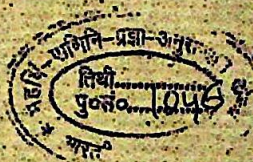 महर्षि-पाणिनि-प्रज्ञा-अनुस
तिथी..............
पु०सं०....1046....
* भारती